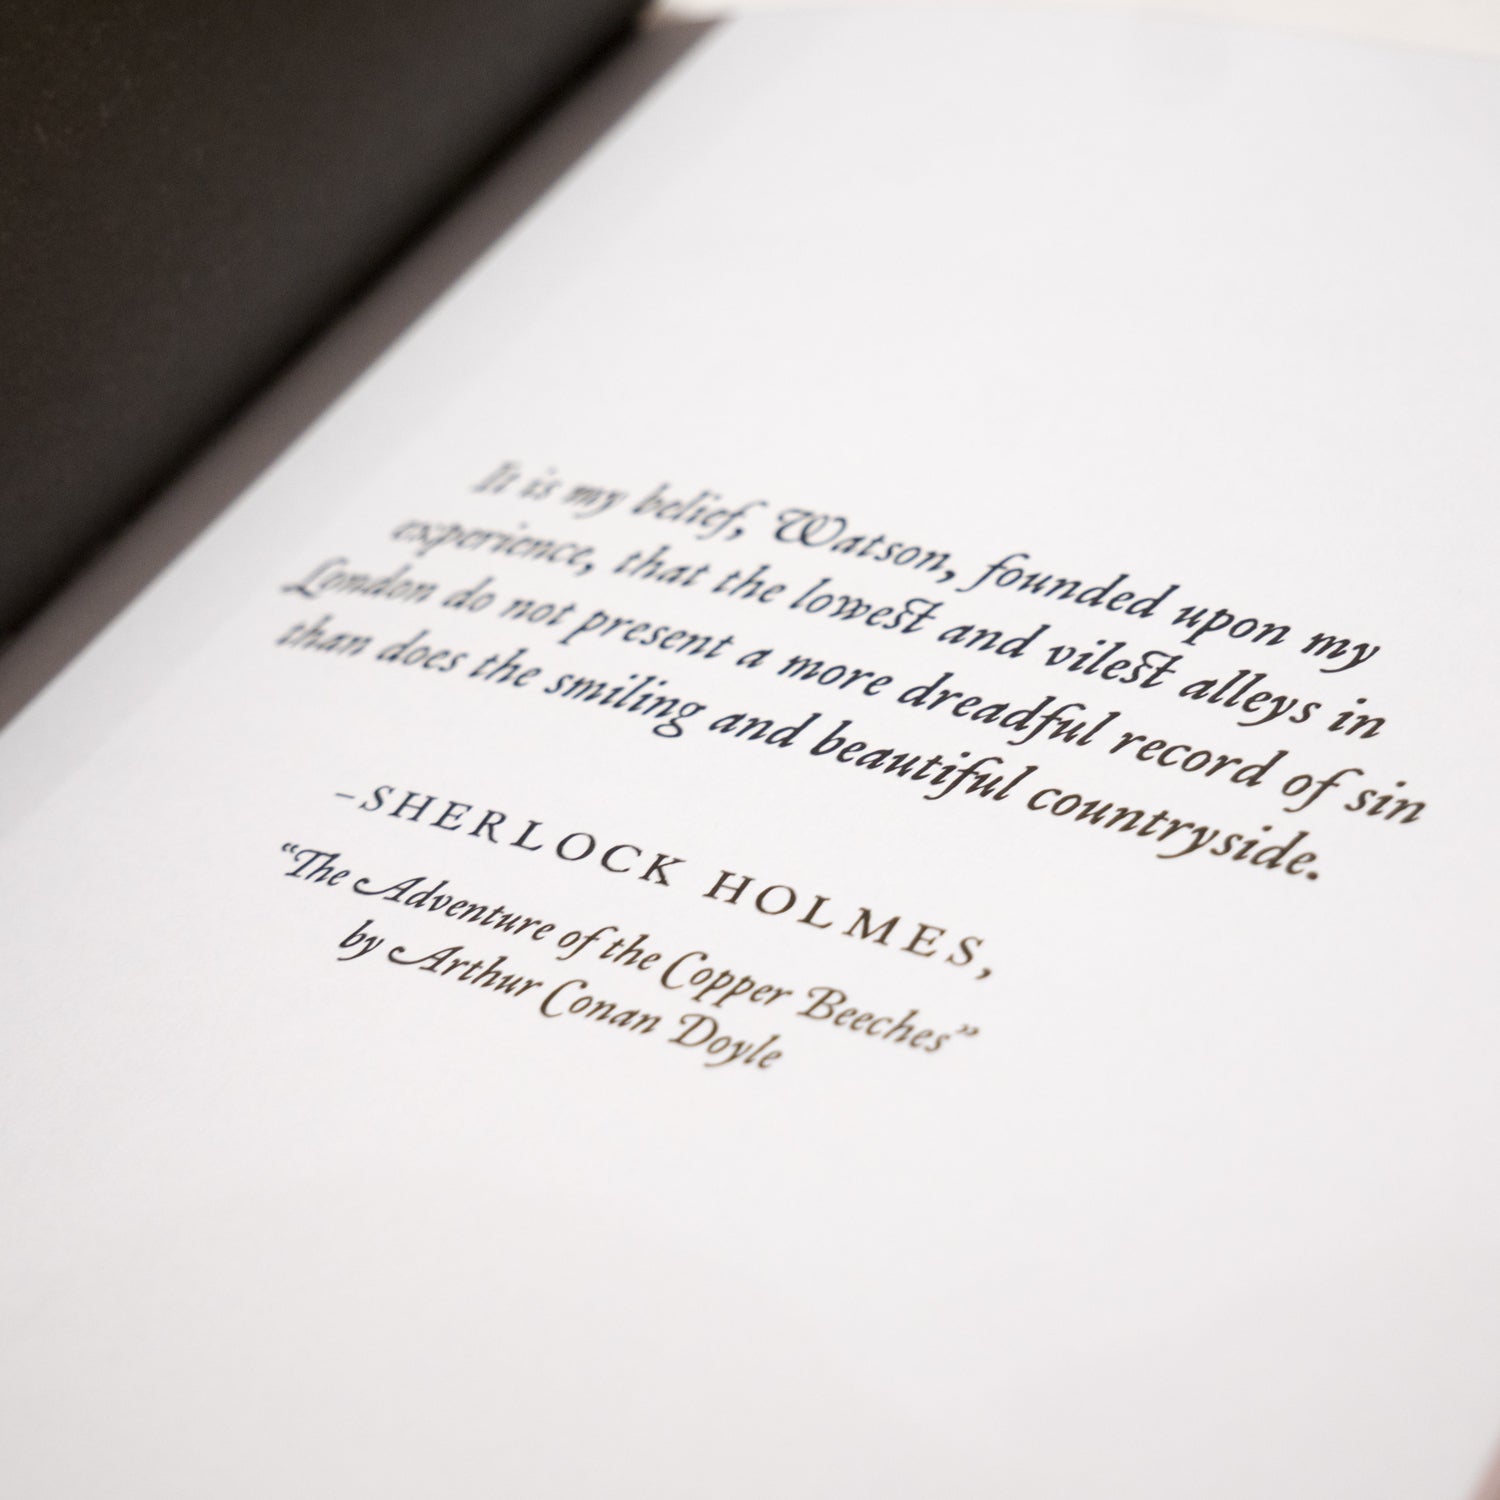 It is my belief, Watson, founded upon my
experience, that the lowest and vilest alleys in
London do not present a more dreadful record of sin
than does the smiling and beautiful countryside.
–SHERLOCK HOLMES,
“The Adventure of the Copper Beeches”
by Arthur Conan Doyle